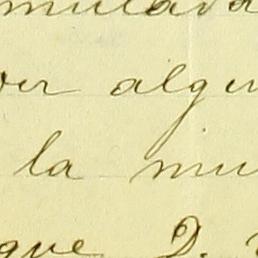 mulada
ver algu
la mu
que D.